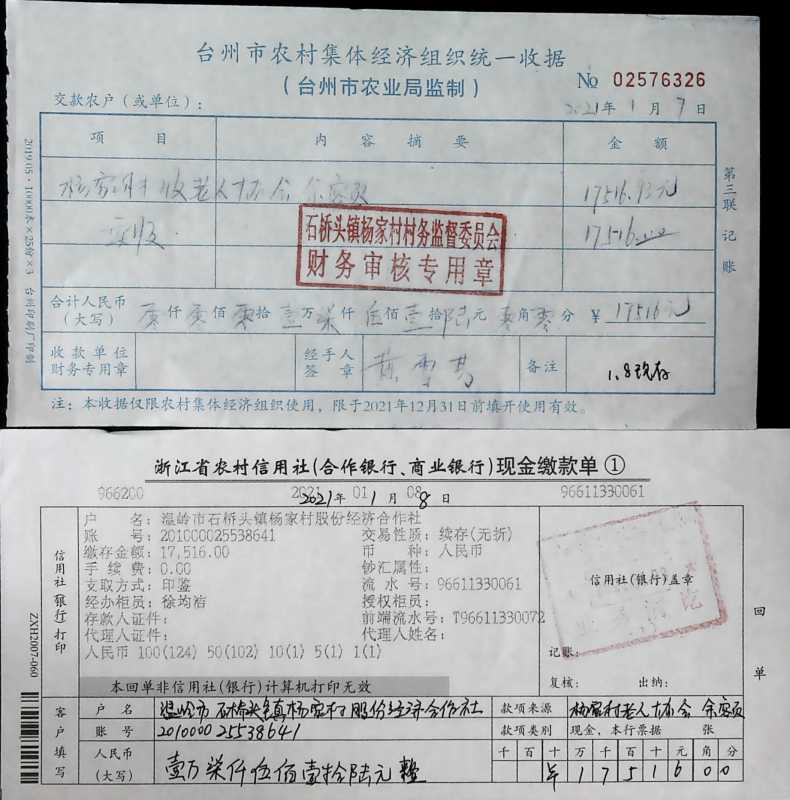 台州市农村集体经济组织统一收据
(台州市农业局监制)
№ 02576326
交款农户(或单位):
2021年1月7日
项目 内容摘要 金额
杨家村收老人协会余容友 17516.93元
实收 17516.00
石桥头镇杨家村村务监督委员会
财务审核专用章
合计人民币(大写) 零仟零佰零拾壹万柒仟伍佰壹拾陆元零角零分 ¥17516元
收款单位财务专用章
经手人签章
备注 1.8现存
注:本收据仅限农村集体经济组织使用,限于2021年12月31日前填开使用有效。
第三联 记账
2019.05·10000本×25份×3 台州印刷厂印制
浙江省农村信用社(合作银行、商业银行)现金缴款单①
966200 2021 01 08 96611330061
2021年1月8日
户 名:温岭市石桥头镇杨家村股份经济合作社
账 号:201000025538641 交易性质:续存(无折)
缴存金额:17,516.00 币 种:人民币
手 续 费:0.00 钞汇属性:
支取方式:印鉴 流 水 号:96611330061
经办柜员:徐均洁 授权柜员:
存款人证件: 前端流水号:T96611330072
代理人证件: 代理人姓名:
人民币 100(124) 50(102) 10(1) 5(1) 1(1)
信用社(银行)打印
信用社(银行)盖章
记账:
复核: 出纳:
本回单非信用社(银行)计算机打印无效
回单
ZXH2007-060
客户填写
户名 温岭市石桥头镇杨家村股份经济合作社 款项来源 杨家村老人协会 余容友
账号 201000025538641 款项类别 现金、本行票据 张
人民币(大写) 壹万柒仟伍佰壹拾陆元整
千百十万千百十元角分
¥1751600